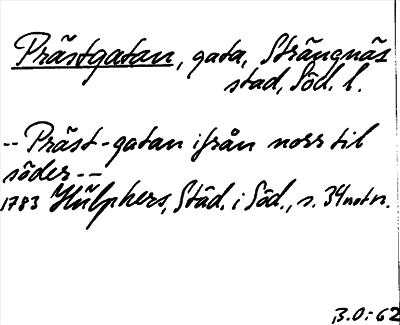 Prästgatan, gata, Strängnäs
stad, Söd. l.
-- Präst-gatan ifrån norr til
söder --
1783 Hülphers, Städ. i Söd., s. 34 not n.
B.O:-62